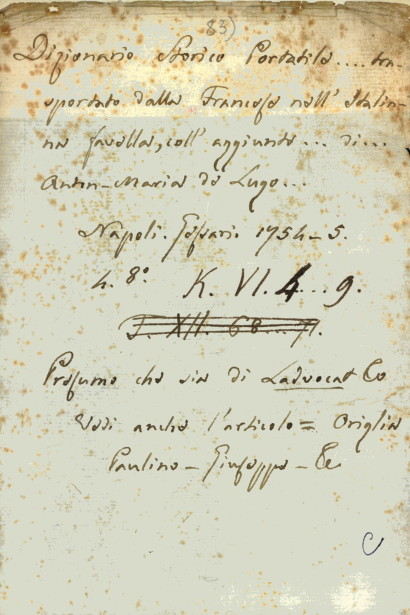 83)
Dizionario storico Portatile.... tra-
sportato dalla Francese nell' Italia-
na favella, coll' aggiunte... di...
Anton-Maria de Lugo...
Napoli. Gessari. 1754-5.
4. 8.° K. VI. 4... 9.
J. XII. 68... 71.
Presumo che sia di Ladvocat &c
Vedi anche l'articolo = Origlia
Paulino - Giuseppe - &c